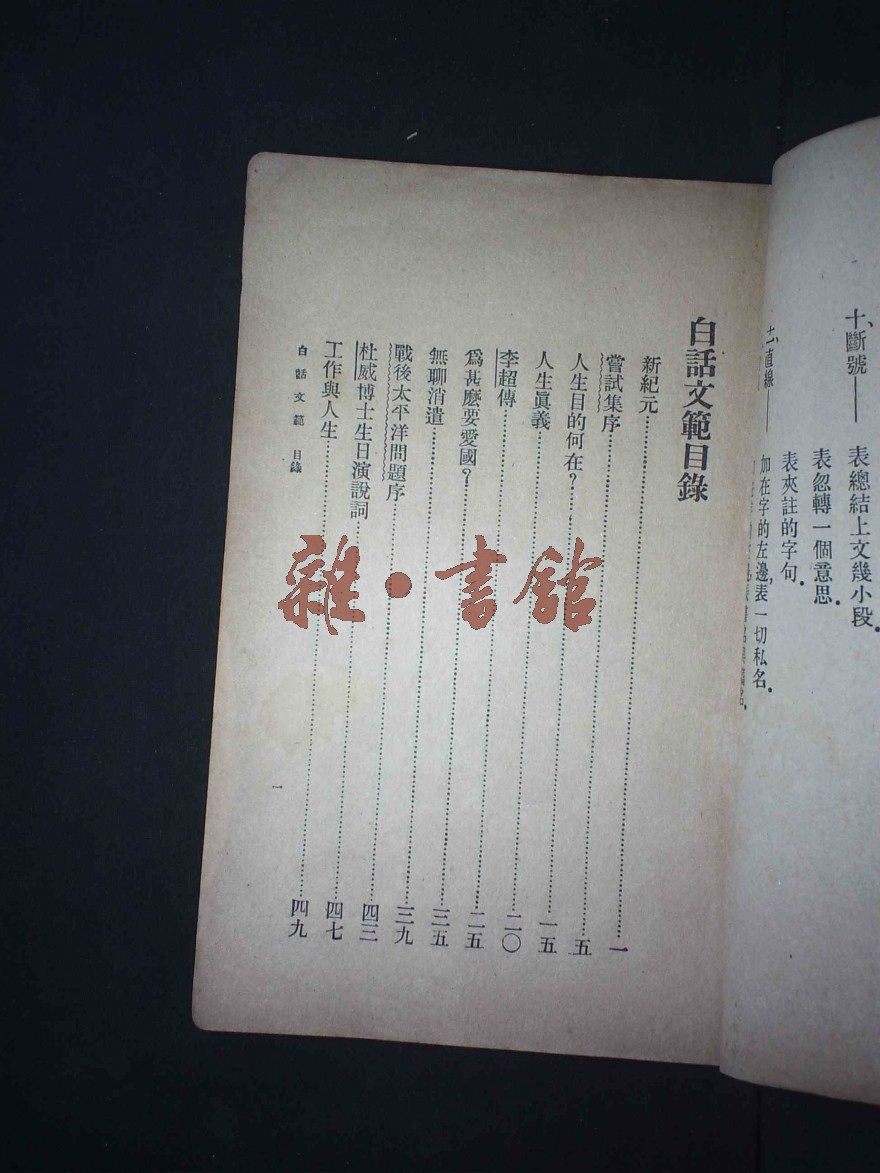 十、斷號——表總結上文幾小段.
表忽轉一個意思.
表夾註的字句.
十一、直線——加在字的左邊,表一切私名.
白話文範目錄
新紀元……一
嘗試集序……五
人生目的何在?……一五
人生眞義……二〇
李超傳……二五
爲甚麽要愛國?……三五
無聊消遣……三九
戰後太平洋問題序……四三
杜威博士生日演說詞……四七
工作與人生……四九
白話文範 目錄 一
雜·書館